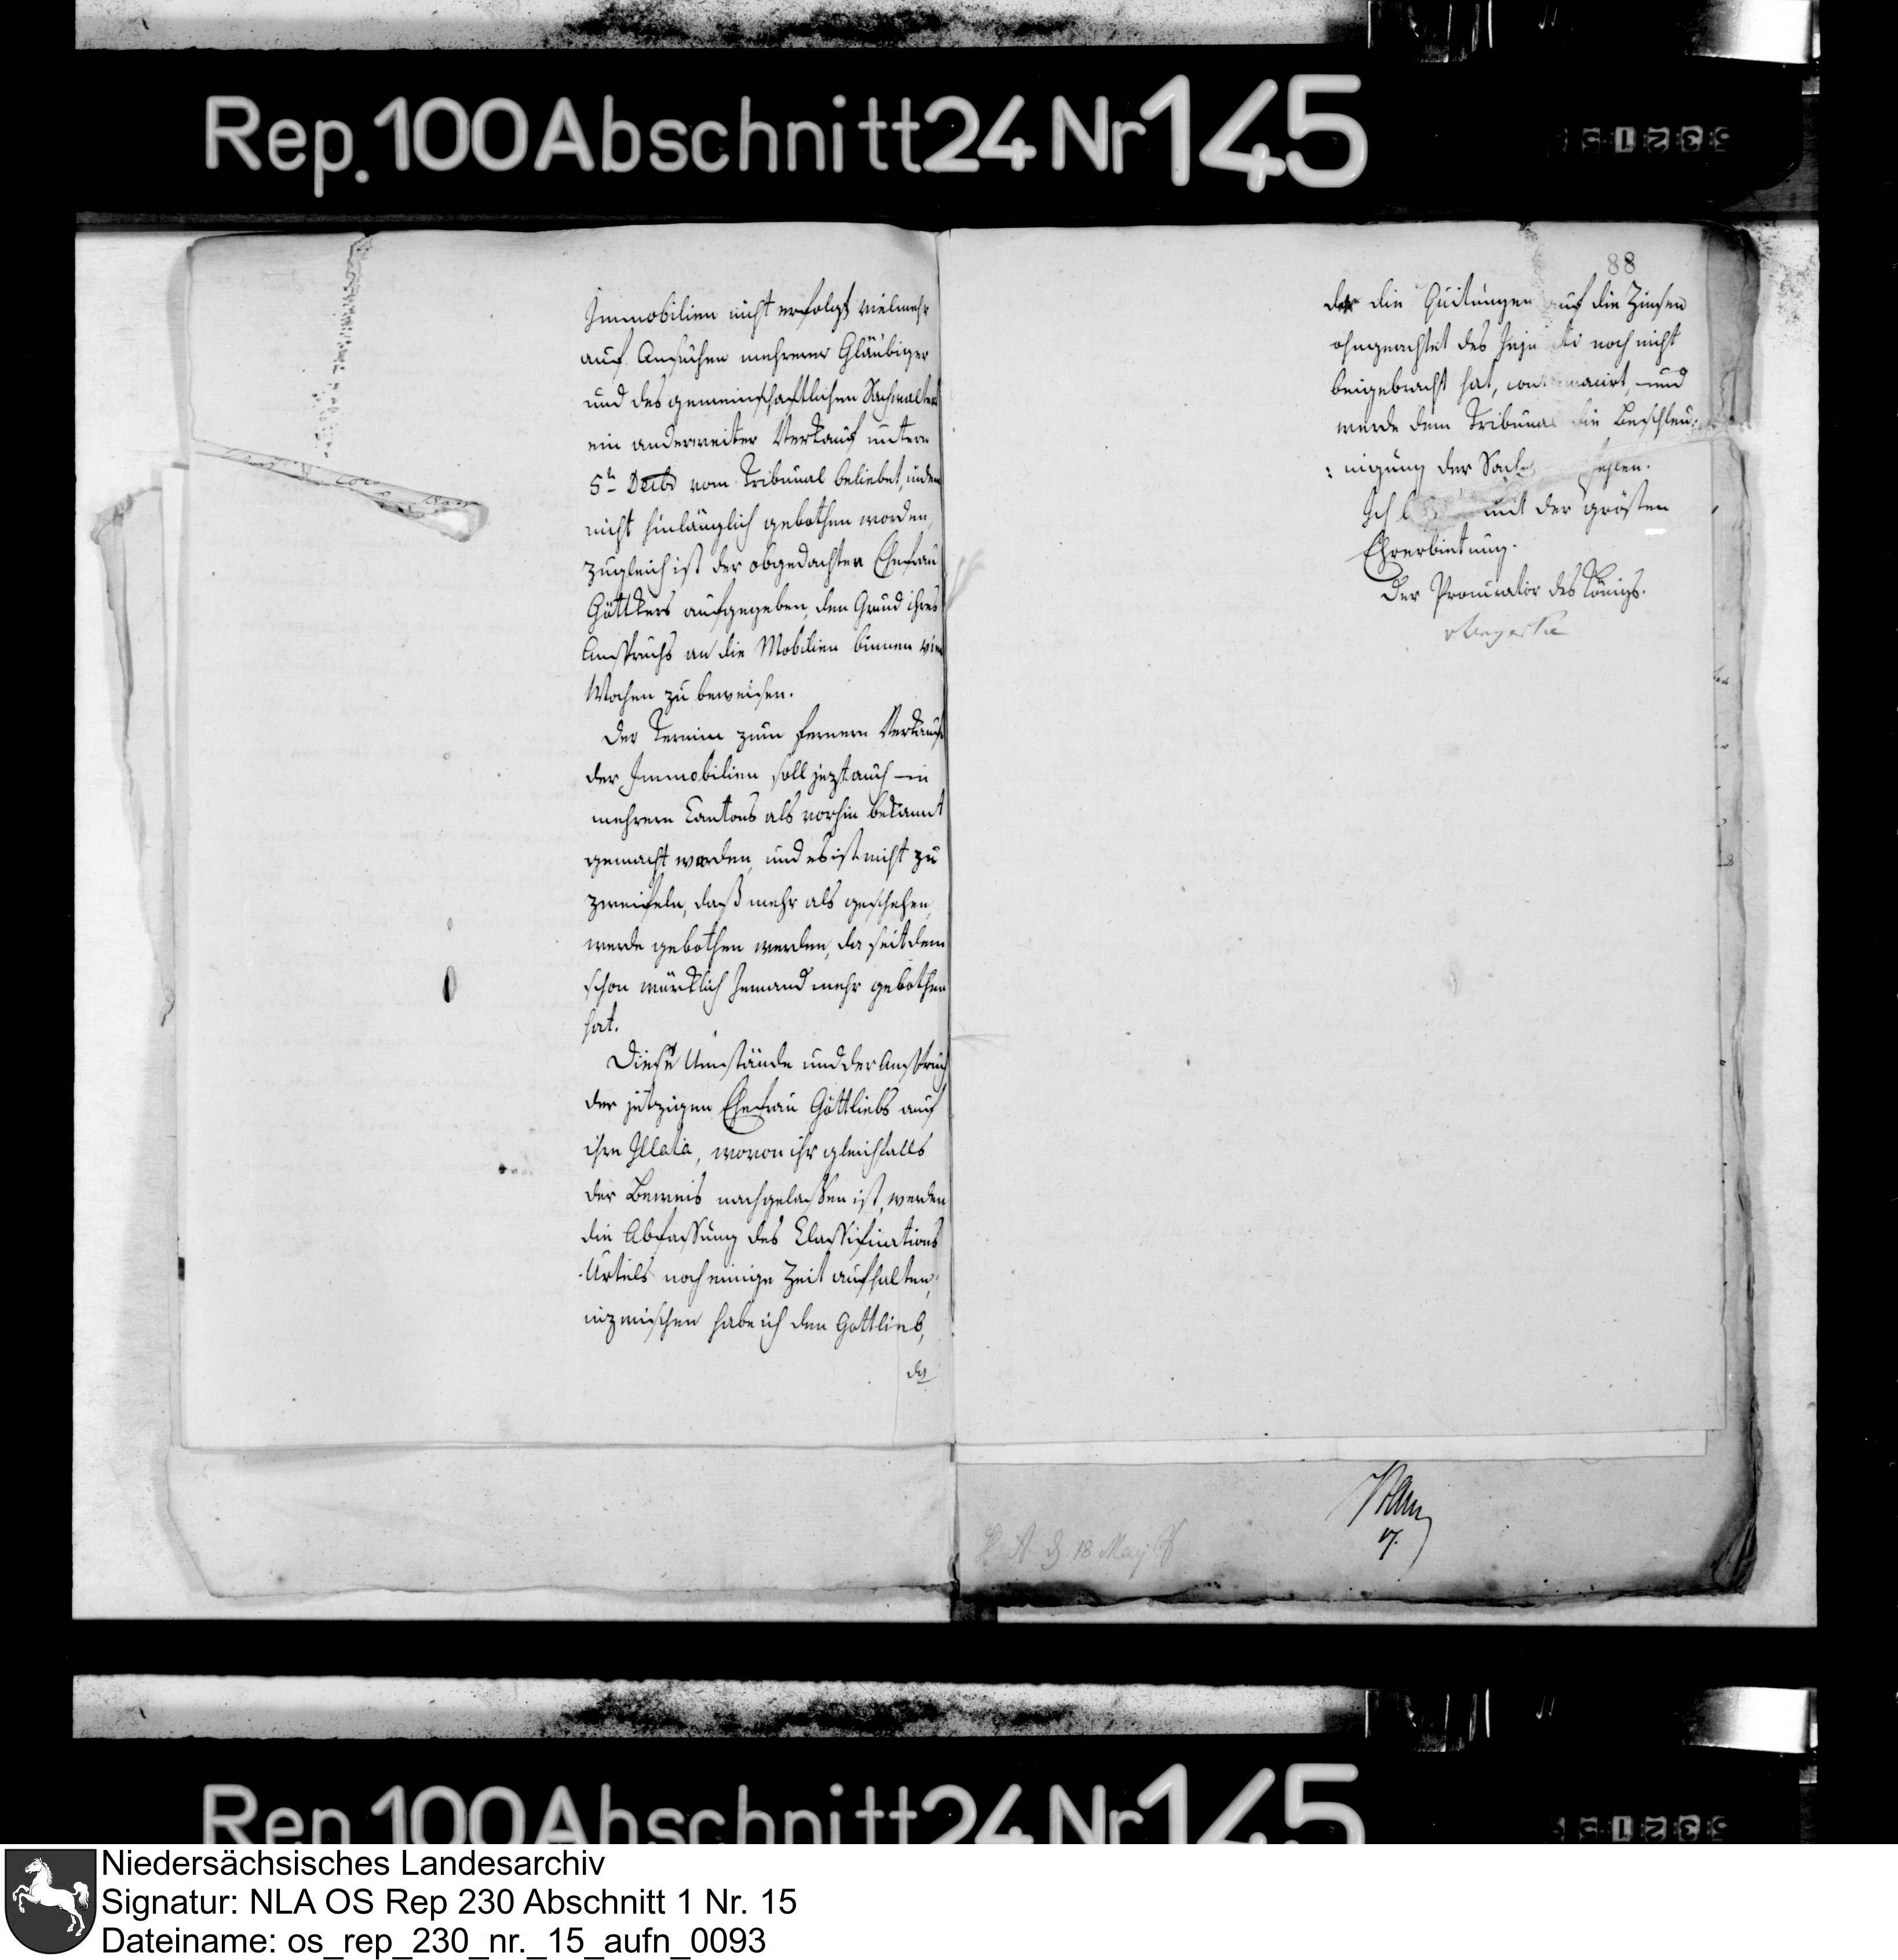 Rep. 100 Abschnitt 24 Nr 145
Immobilien nicht erfolgt vielmehr
auf Ansuchen mehrerer Gläubiger
und des gemeinschaftlichen Sachwalters
ein anderweiter Verkauf untern
5tn Decbr vom Tribunal beliebet, indem
nicht hinlänglich gebothen worden,
zugleich ist der obgedachten Ehefrau
Göttkers aufgegeben, den Grund ihres
Anspruchs an die Mobilien binnen vier
Wochen zu beweisen.
Der Termin zum fernern Verkaufe
der Immobilien soll jezt auch in
mehrern Cantons als vorhin bekannt
gemacht werden, und es ist nicht zu
zweifeln, daß mehr als geschehen,
werde gebothen werden, da seitdem
schon würklich Jemand mehr gebothen
hat.
Diese Umstände und der Anspruch
der jetzigen Ehefrau Göttliebs auf
ihre Illata, wovon ihr gleichfalls
der Beweis nachgelaßen ist, werden
die Abfassung des Classifications
Urtels noch einige Zeit aufhalten,
inzwischen habe ich den Gottlieb,
da
88
der die Quitungen auf die Zinsen
ohngeachtet des noch nicht
beigebracht hat, und
werde dem Tribunal die Beschleu:
: nigung der Sache fehlen.
Ich mit der grösten
Ehrerbietung.
Der Procurator des Königs.
18 May
Rep. 100 Abschnitt 24 Nr 145
Niedersächsisches Landesarchiv
Signatur: NLA OS Rep 230 Abschnitt 1 Nr. 15
Dateiname: os_rep_230_nr._15_aufn_0093